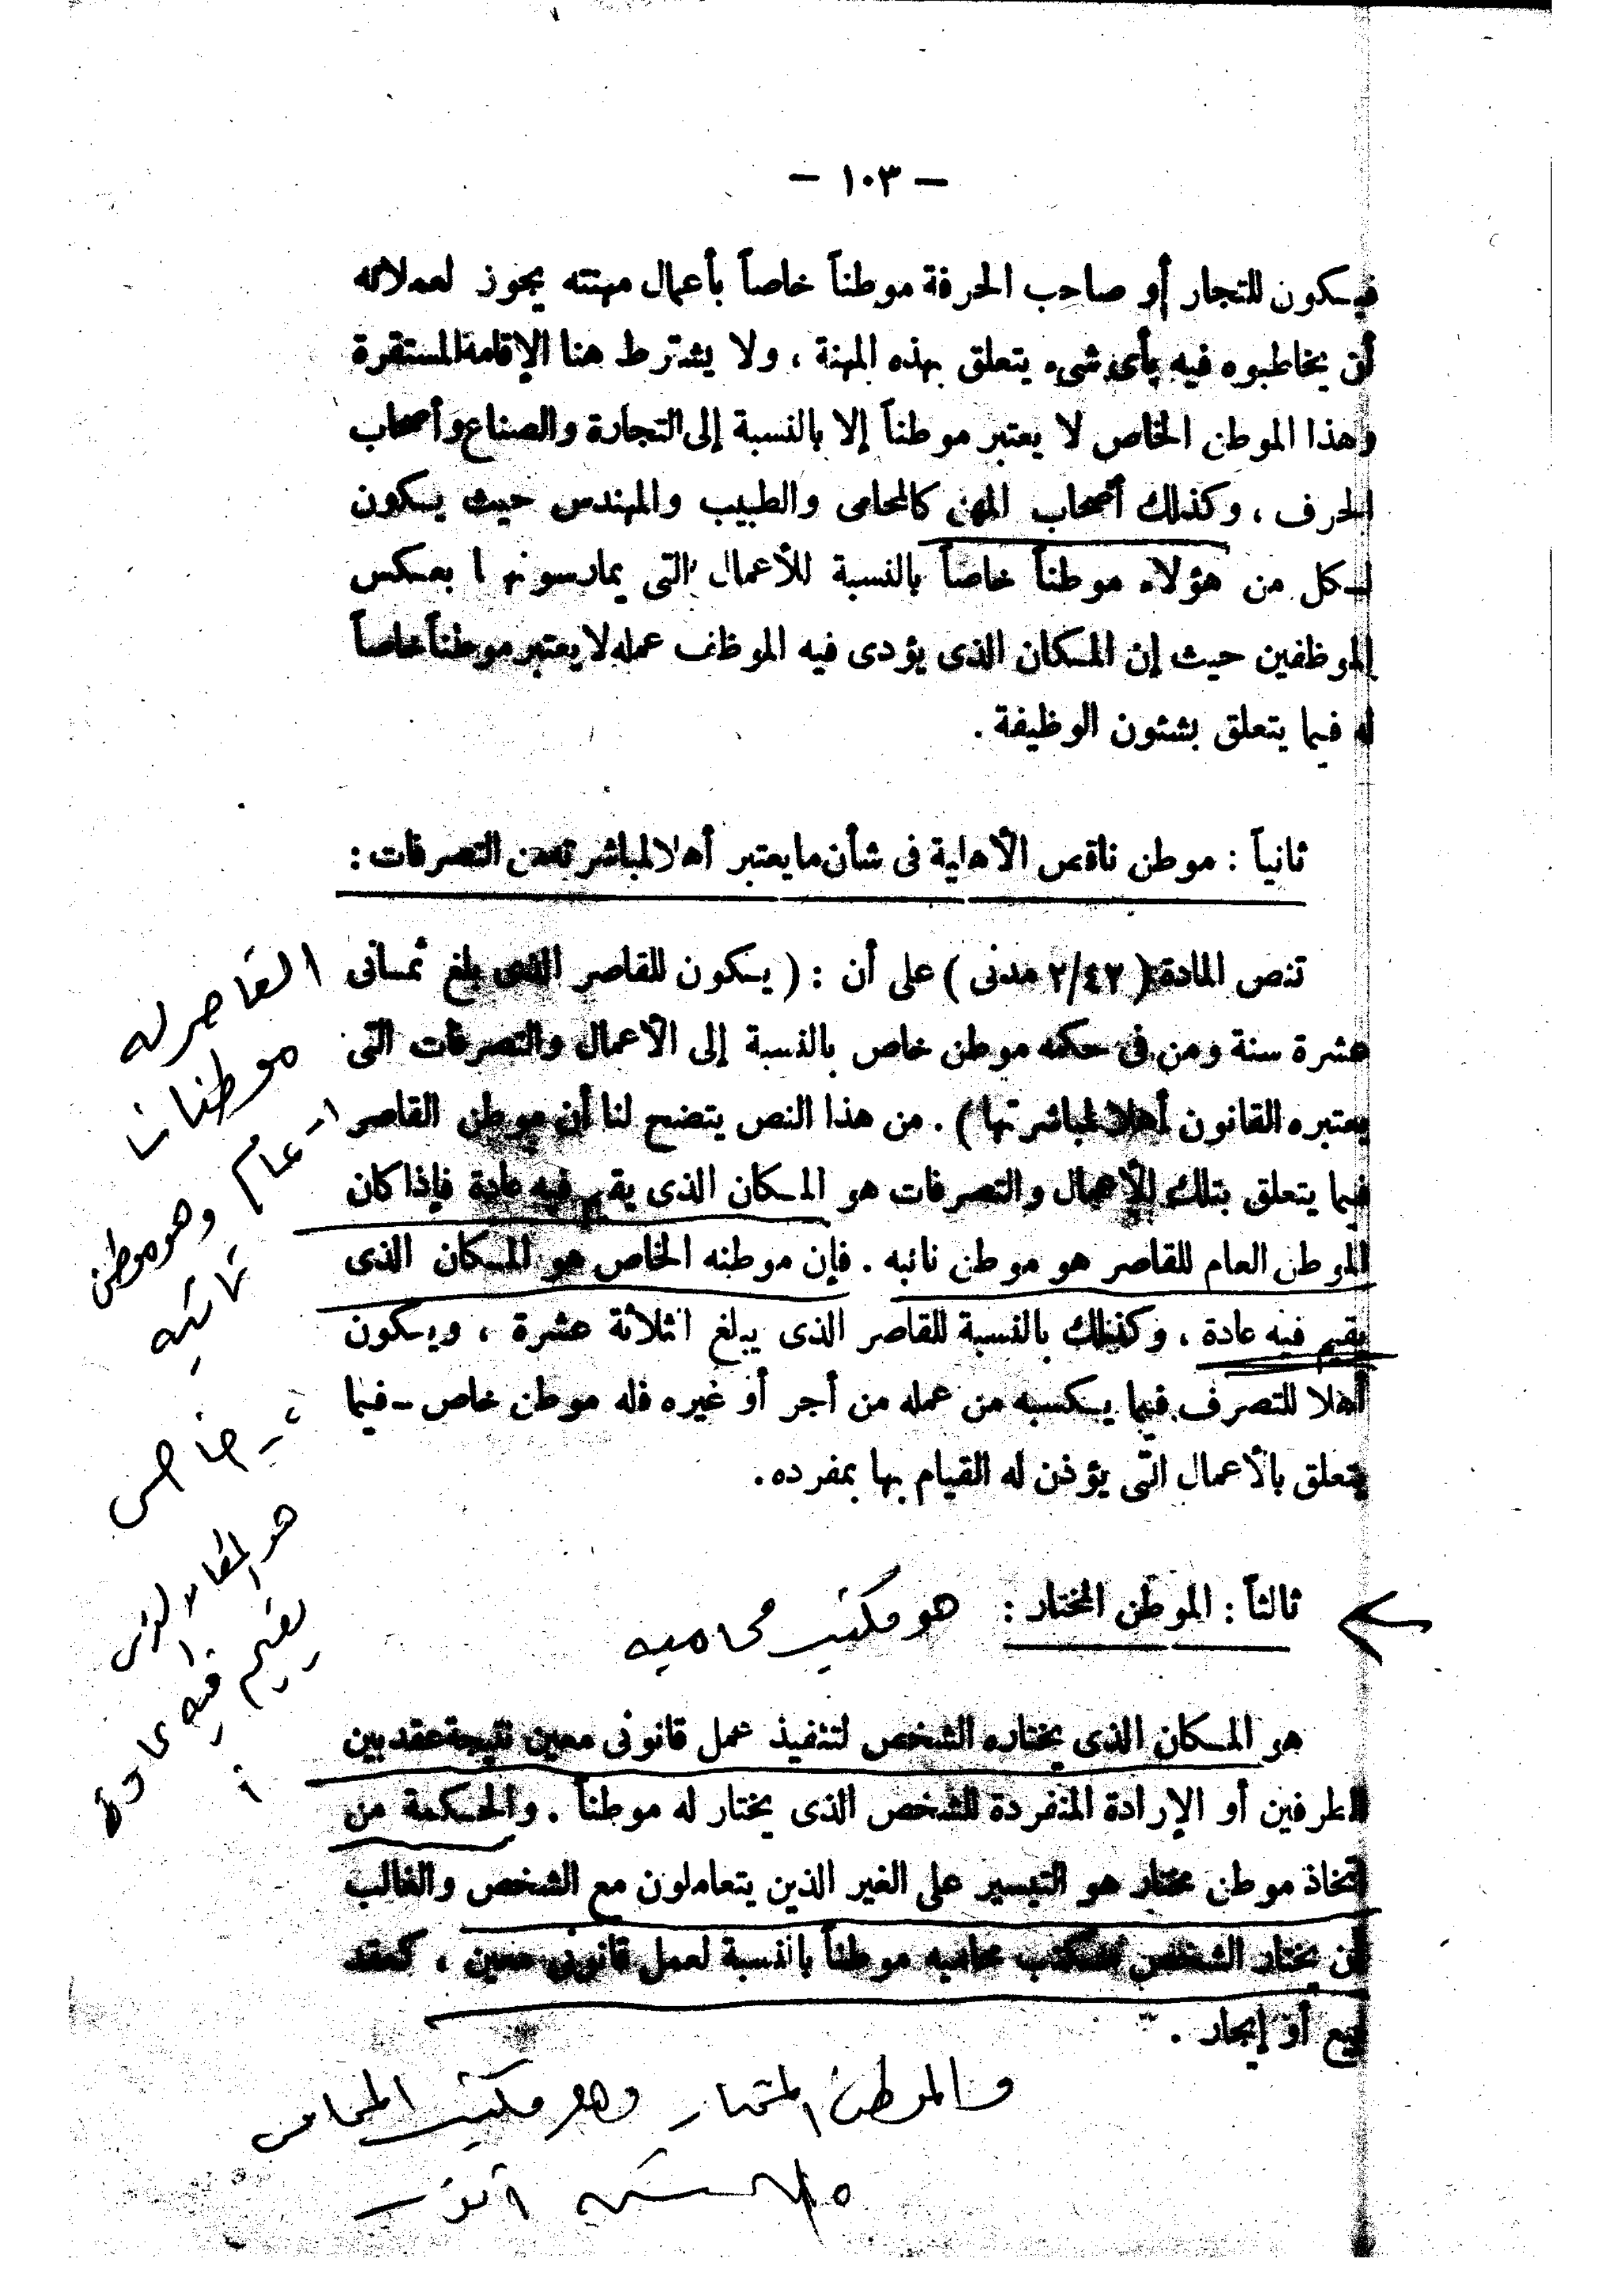 — ١٠٣ —
فيكون للتجار أو صاحب الحرفة موطناً خاصاً بأعمال مهنته يجوز لعملائه
أن يخاطبوه فيه بأى شىء يتعلق بهذه المهنة ، ولا يشترط هنا الإقامة المستقرة
وهذا الموطن الخاص لا يعتبر موطناً إلا بالنسبة إلى التجارة والصناع وأصحاب
الحرف ، وكذلك أصحاب المهن كالمحامى والطبيب والمهندس حيث يكون
لكل من هؤلاء موطناً خاصاً بالنسبة للأعمال التى يمارسونها بعكس
الموظفين حيث إن المكان الذى يؤدى فيه الموظف عمله لا يعتبر موطناً خاصاً
له فيما يتعلق بشئون الوظيفة .
ثانياً : موطن ناقص الأهلية فى شأن ما يعتبر أهلا لمباشرته من التصرفات :
تنص المادة ( ٢/٤٢ مدنى ) على أن : ( يكون للقاصر الذى بلغ ثمانى
عشرة سنة ومن فى حكمه موطن خاص بالنسبة إلى الأعمال والتصرفات التى
يعتبره القانون أهلا لمباشرتها ) . من هذا النص يتضح لنا أن موطن القاصر
فيما يتعلق بتلك الأعمال والتصرفات هو المكان الذى يقيم فيه عادة فإذا كان
الموطن العام للقاصر هو موطن نائبه . فإن موطنه الخاص هو المكان الذى
يقيم فيه عادة ، وكذلك بالنسبة للقاصر الذى يبلغ الثلاثة عشرة ، ويكون
أهلا للتصرف فيما يكسبه من عمله من أجر أو غيره فله موطن خاص - فيما
يتعلق بالأعمال التى يؤذن له القيام بها بمفرده .
القاصر له
موطنان
١- عام وهو موطن
نائبه
٢- خاص
هو المكان الذى
يقيم فيه عادة
ثالثاً : الموطن المختار : هو مكتب محاميه
هو المكان الذى يختاره الشخص لتنفيذ عمل قانونى معين نتيجة عقد بين
الطرفين أو الإرادة المنفردة للشخص الذى يختار له موطناً . والحكمة من
اتخاذ موطن مختار هو التيسير على الغير الذين يتعاملون مع الشخص والغالب
أن يختار الشخص مكتب محاميه موطناً بالنسبة لعمل قانونى معين ، كعقد
بيع أو إيجار .
والموطن المختار وهو مكتب المحامى